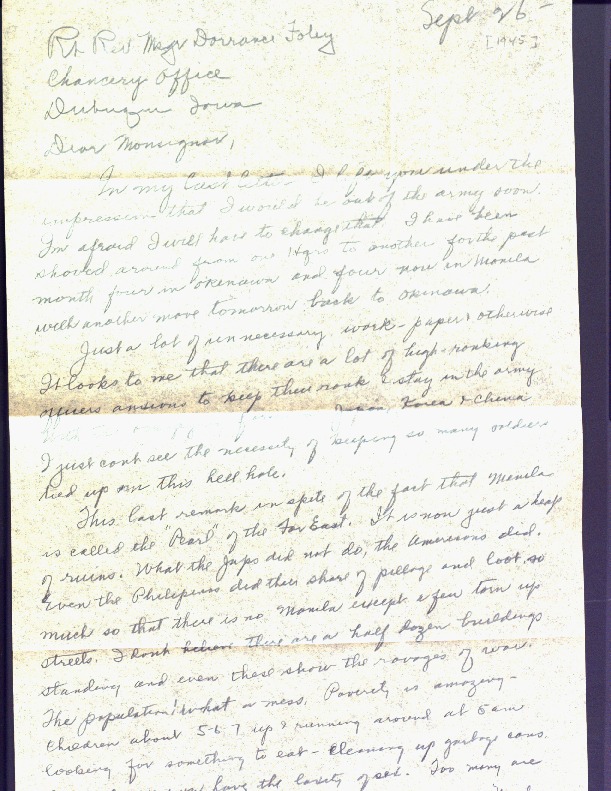 Sept 26 -
[1945]
Rt Red Msgr Dorrance Foley
Chancery Office
Dubuque Iowa
Dear Monsignor,
In my last letter I left you under the
impression that I would be out of the army soon.
I'm afraid I will have to change that. I have been
shoved around from one Hqrs to another for the past
month four in Okinawa and four now in Manila
with another move tomorrow back to Okinawa.
Just a lot of unnecessary work - paper & otherwise
It looks to me that there are a lot of high-ranking
officers anxious to keep their rank & stay in the army
With the Japan, Korea & China
I just cant see the necessity of keeping so many soldiers
tied up on this hell hole.
This last remark in spite of the fact that Manila
is called the "Pearl" of the Far East. It is now just a heap
of ruins. What the Japs did not do, the Americans did.
Even the Philipians did their share of pillage and loot so
much so that there is no Manila except a few torn up
streets. I dont believe there are a half dozen buildings
standing and even these show the ravages of war.
The population! what a mess. Poverty is amazing -
Children about 5-6-7 up & running around at 5 am
looking for something to eat - cleaning up garbage cans.
have the laxity of sex. Too many are